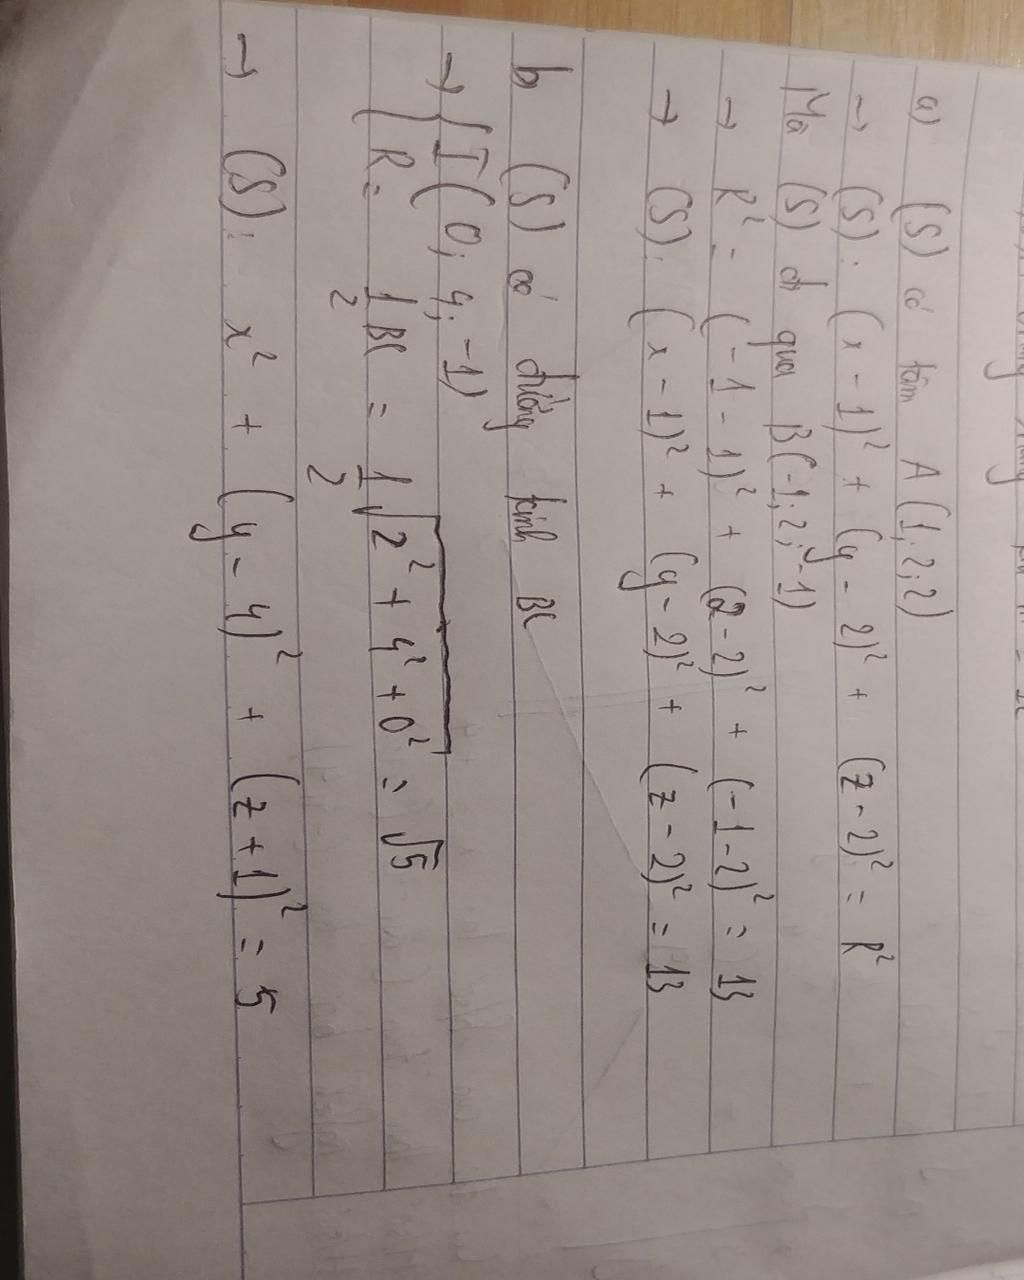 a) (S) có tâm A (1; 2; 2)
→ (S): (x - 1)² + (y - 2)² + (z - 2)² = R²
Mà (S) đi qua B(-1; 2; -1)
→ R² = (-1 - 1)² + (2 - 2)² + (-1 - 2)² = 13
→ (S): (x - 1)² + (y - 2)² + (z - 2)² = 13
b (S) có đường kính BC
→ { I (0; 4; -1)
R = 1/2 BC = 1/2 √(2² + 4² + 0²) = √5
→ (S): x² + (y - 4)² + (z + 1)² = 5